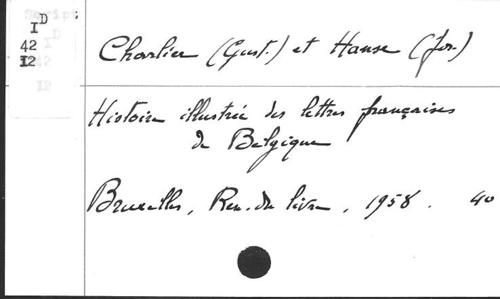 I D
42
I2
Charlier (Gust.) et Hanse (Jos.)
Histoire illustrée des lettres françaises
de Belgique
Bruxelles, Ren. du livre, 1958. 4o